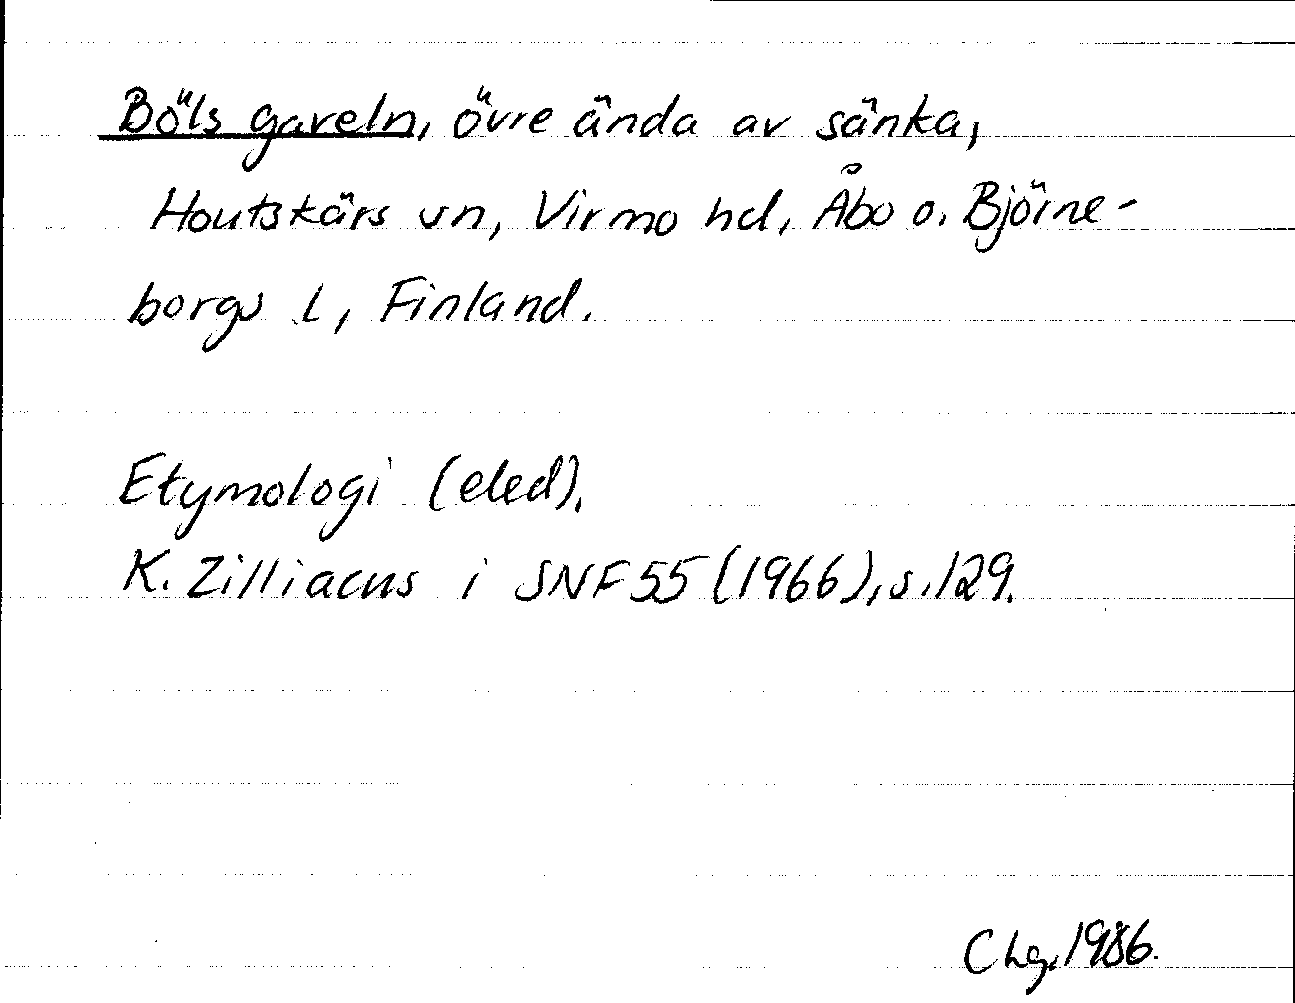 Böls gaveln, övre ända av sänka,
Houtskärs sn, Virmo hd, Åbo o. Björne-
borgs l, Finland.
Etymologi (eled).
K. Zilliacus i SNF 55 (1966), s. 129.
Chg. 1986.